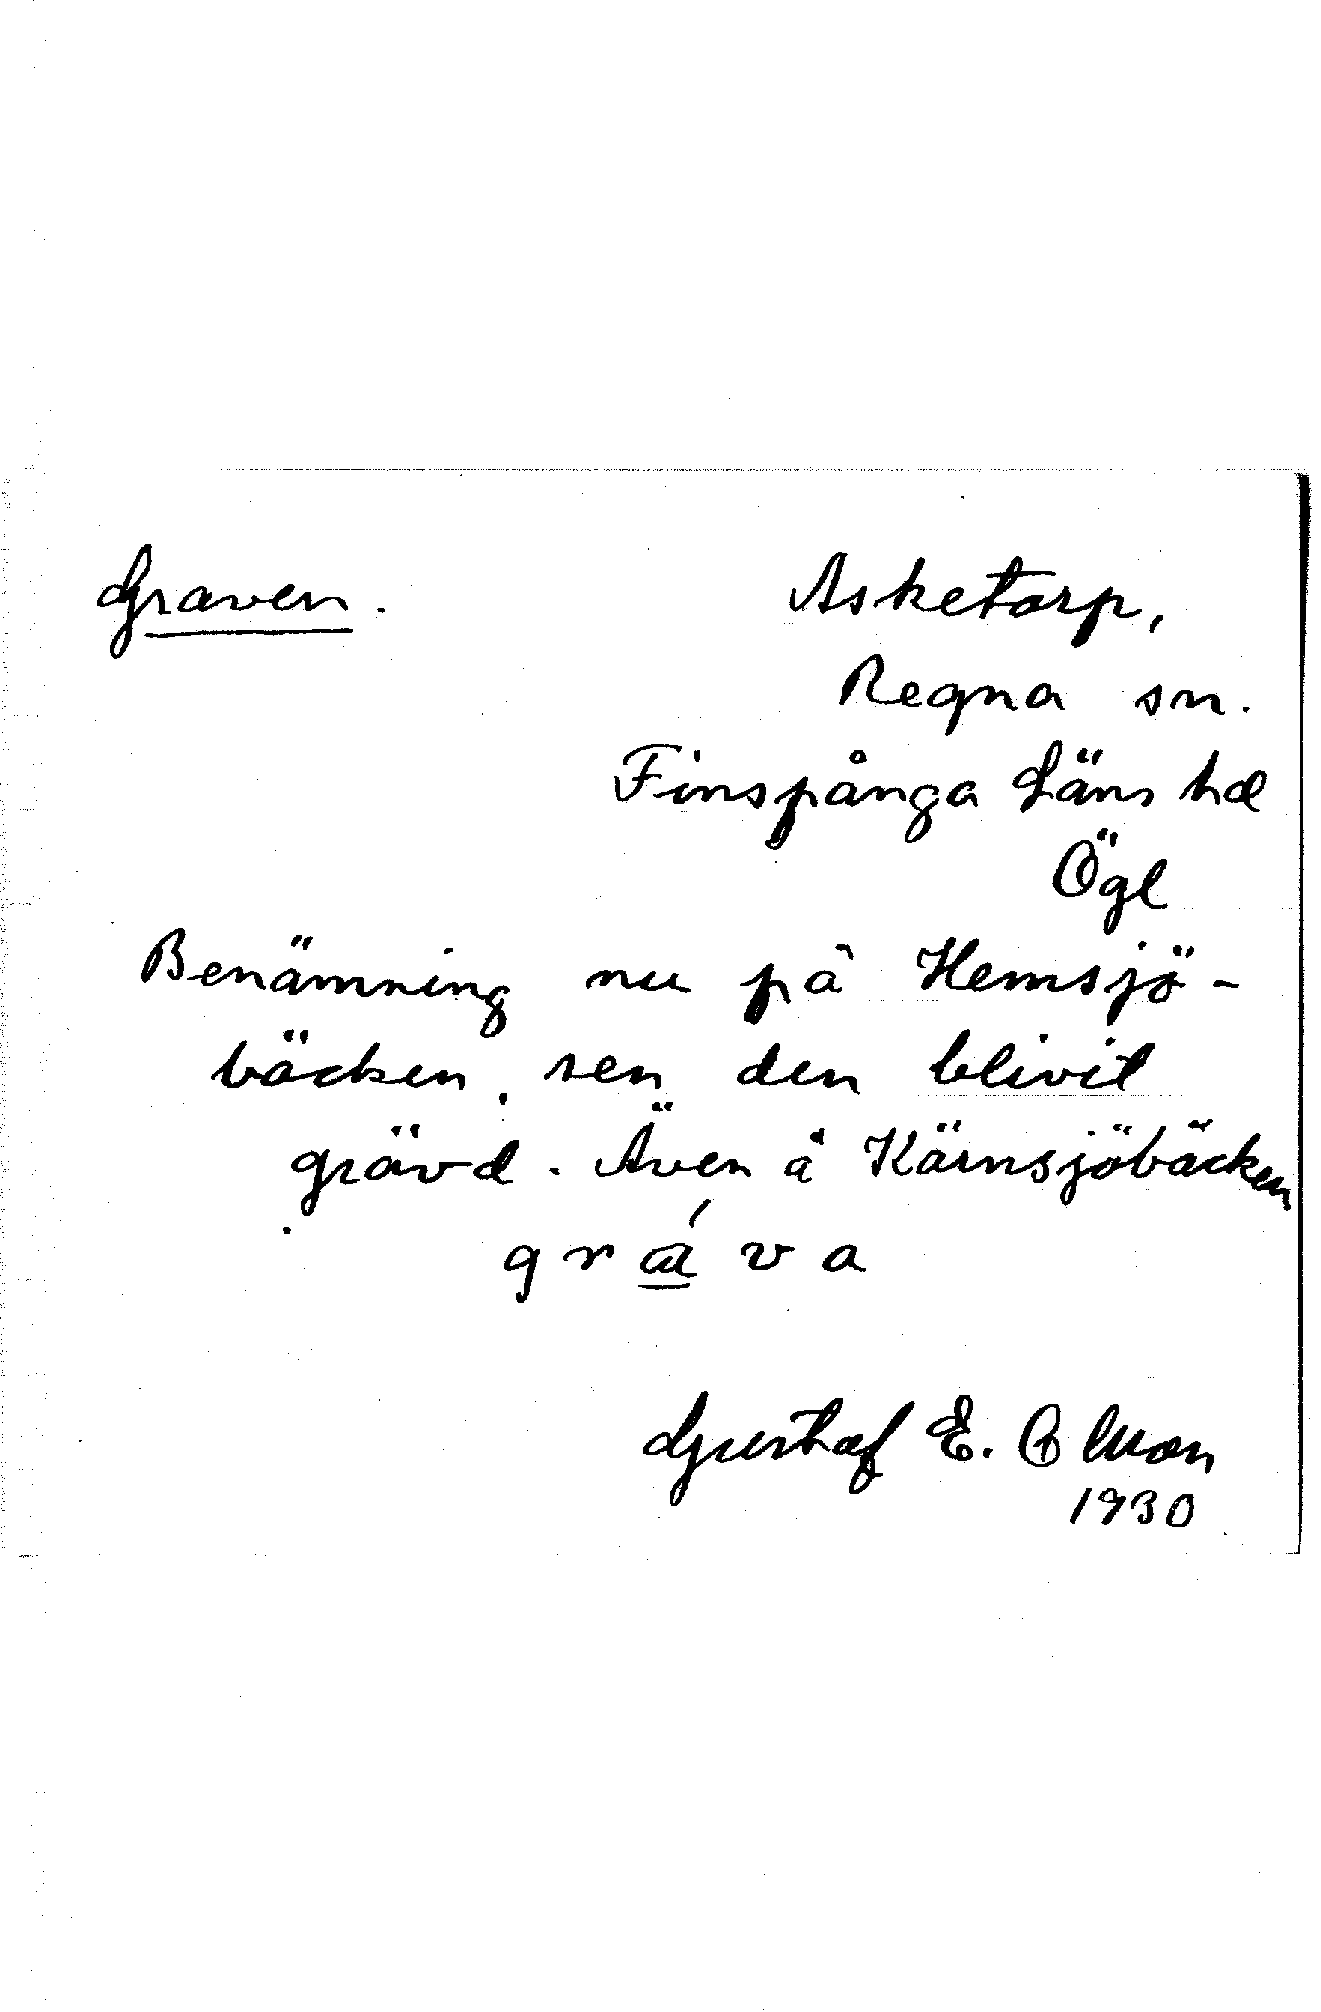 Graven. Asketorp,
Regna sn.
Finspånga Läns hd
Ögl
Benämning nu på Hemsjö-
bäcken, sen den blivit
grävd. Även å Kärnsjöbäcken
gráva
Gustaf E. Olsson
1930